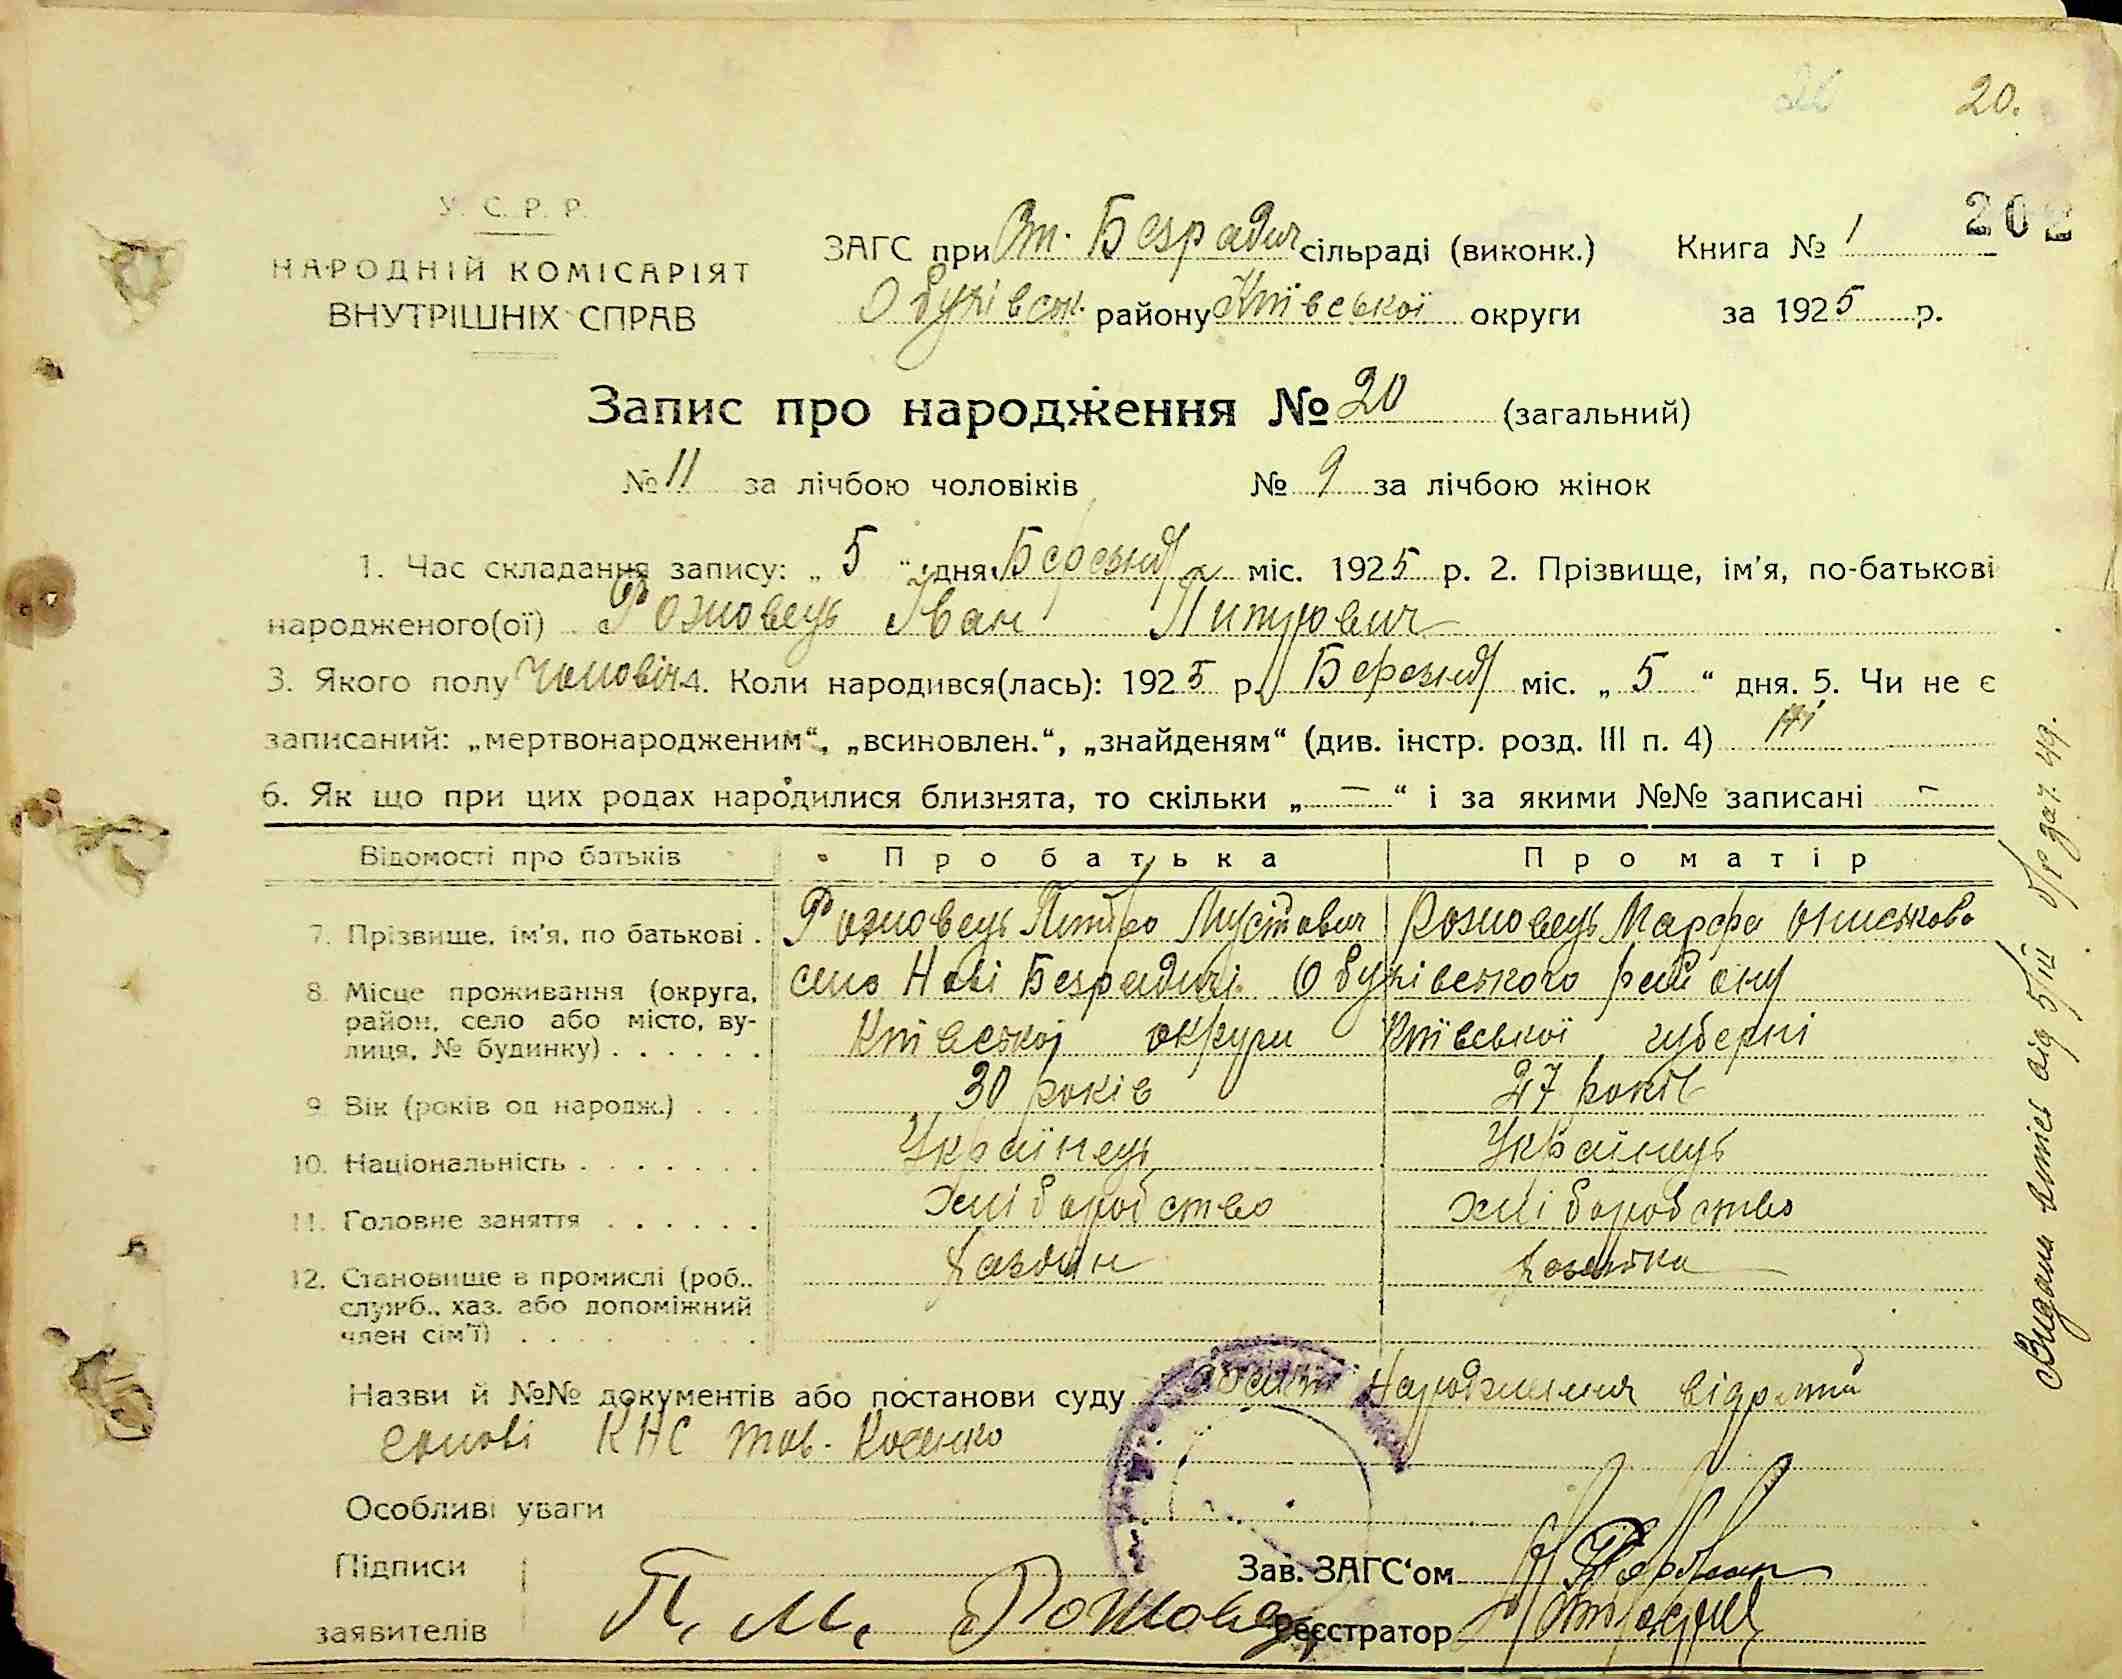 20.
202
У. С. Р. Р.
НАРОДНІЙ КОМІСАРІЯТ
ВНУТРІШНІХ СПРАВ
ЗАГС при Вт. Безрадич сільраді (виконк.)
Обухівськ. району Київської округи
Книга № 1
за 1925 р.
Запис про народження № 20 (загальний)
№ 11 за лічбою чоловіків № 9 за лічбою жінок
1. Час складання запису: „ 5 “ дня Березня міс. 1925 р. 2. Прізвище, ім’я, по-батькові
народженого(ої) Рожовець Іван Питрович
3. Якого полу чоловіч 4. Коли народився(лась): 1925 р. Березня міс. „ 5 “ дня. 5. Чи не є
записаний: „мертвонародженим“, „всиновлен.“, „знайденям“ (див. інстр. розд. III п. 4) ні
6. Як що при цих родах народилися близнята, то скільки „ — “ і за якими №№ записані —
Відомості про батьків Про батька Про матір
7. Прізвище, ім’я, по батькові . Рожовець Питро Рожовець Марфа
8. Місце проживання (округа, село Нові Безрадичі Обухівського району
район, село або місто, ву-
лиця, № будинку) . . . . . . Київської округи Київської губерні
9. Вік (років од народж.) . . . 30 років 27 років
10. Національність . . . . . . . Українець Українець
11. Головне заняття . . . . . . хліборобство хліборобство
12. Становище в промислі (роб., хазяин хазяйка
служб., хаз. або допоміжний
член сім’ї) . . . . . . . . .
Назви й №№ документів або постанови суду народження
КНС тов. Косенко
Особливі уваги
Підписи
заявителів П. М. Рожовец
Зав. ЗАГС‘ом
Реєстратор
Видана витяг від 5/III